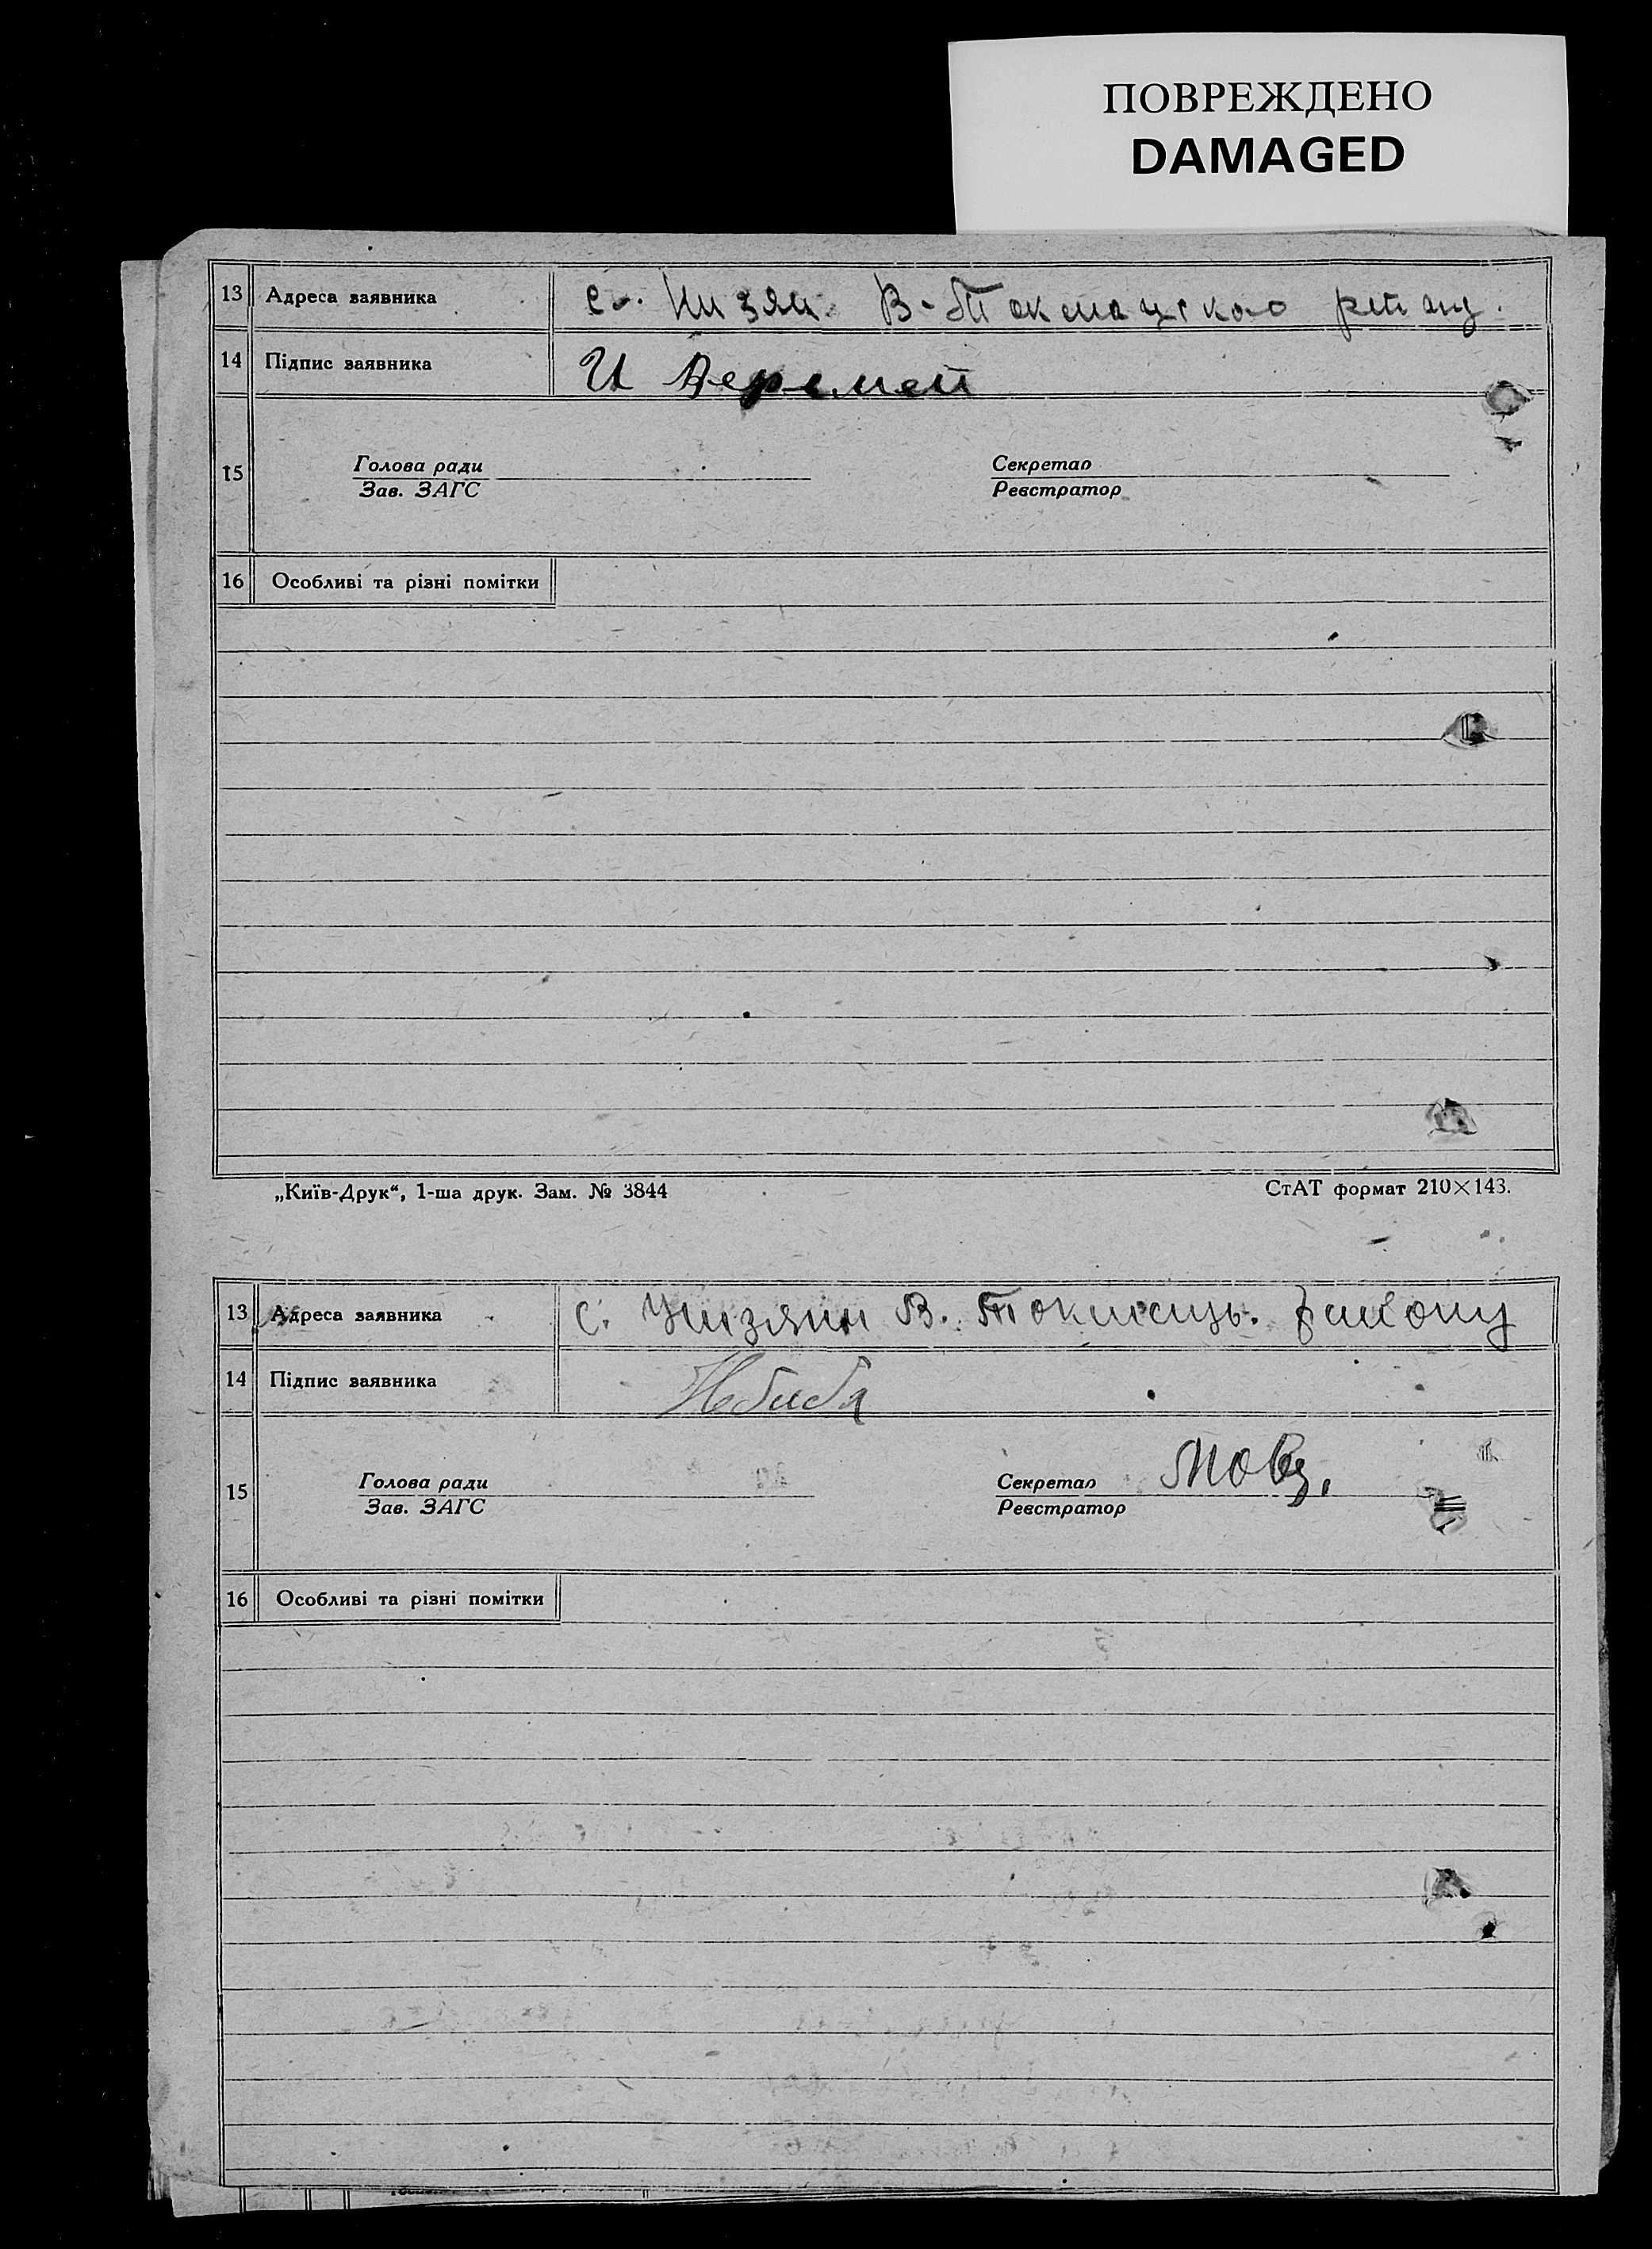 ПОВРЕЖДЕНО
DAMAGED
13 Адреса заявника с. Низян. В-Токмацького району.
14 Підпис заявника И Веремей
15 Голова ради Секретар
Зав. ЗАГС Реєстратор
16 Особливі та різні помітки
„Київ-Друк“, 1-ша друк. Зам. № 3844 СтАТ формат 210×143.
13 Адреса заявника с. В. Токмаць. району
14 Підпис заявника
15 Голова ради Секретар
Зав. ЗАГС Реєстратор
16 Особливі та різні помітки